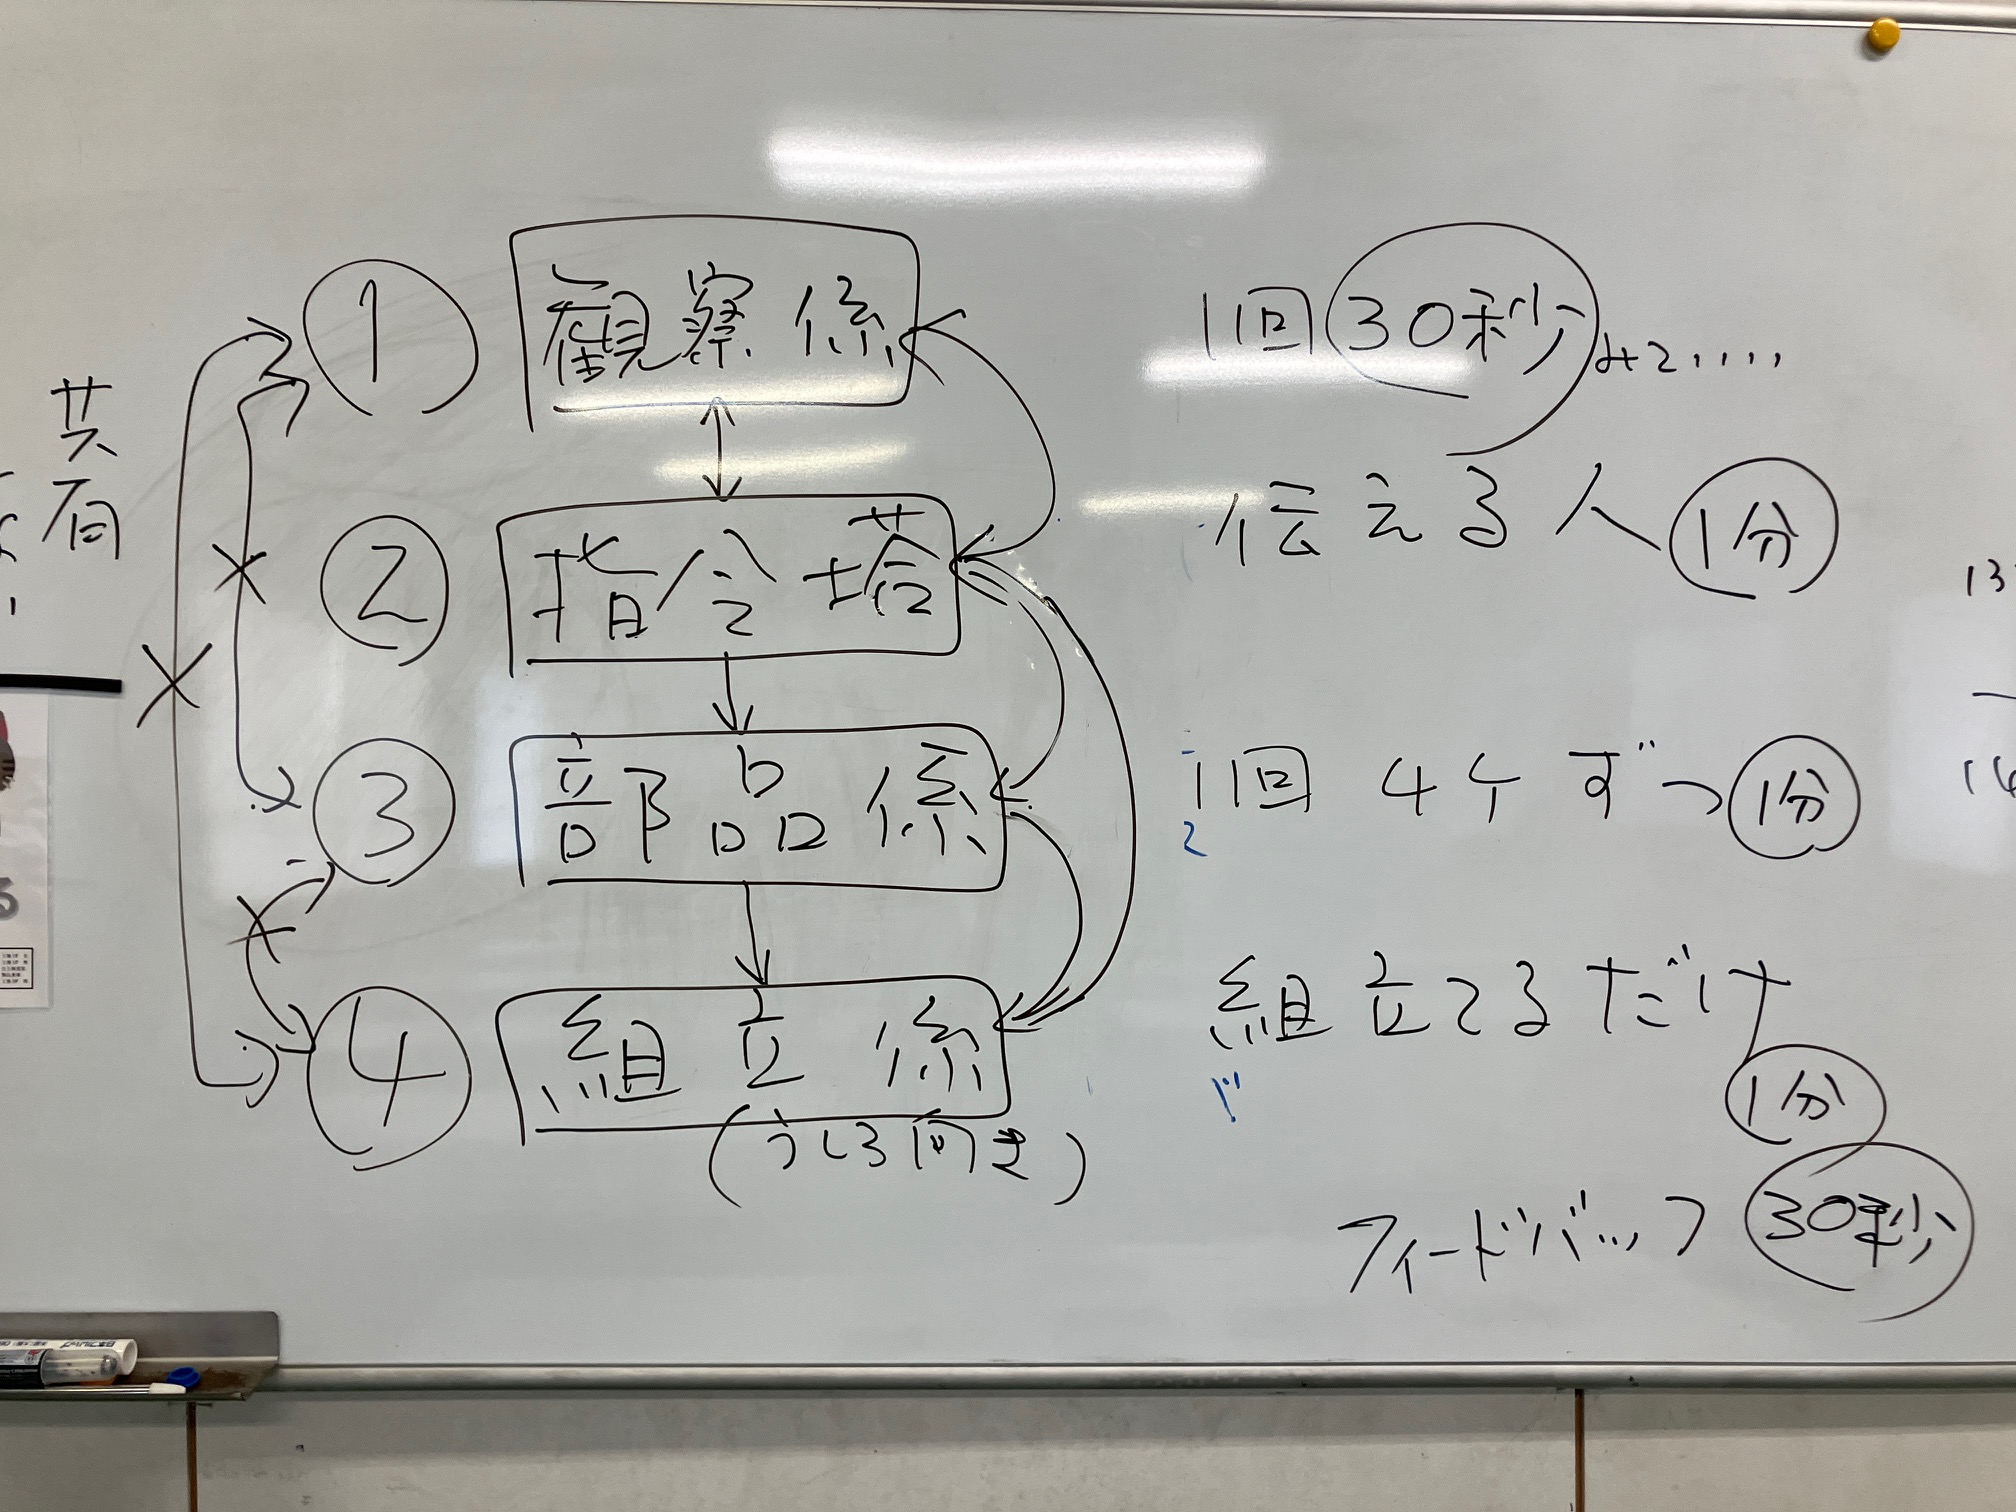 共有
① 観察係 1回 30秒 みて....
② 指令塔 伝える人 1分
③ 部品係 1回 4ケずつ 1分
④ 組立係 組立てるだけ 1分
(うしろ向き)
フィードバック 30秒